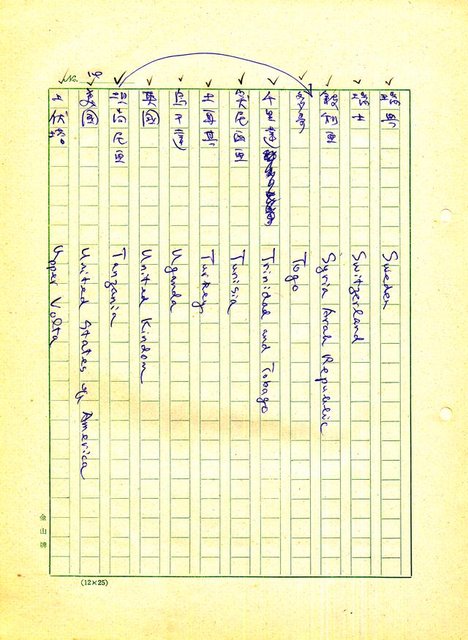 瑞典 Sweden
瑞士 Switzerland
敘利亞 Syria Arab Republic
多哥 Togo
千里達 Trinidad and Tobago
突尼西亞 Tunisia
土耳其 Turkey
烏干達 Uganda
英國 United Kindom
Tanzania
美國 United States of America
上伏塔 Upper Volta
No. 9
金山牌
(12×25)